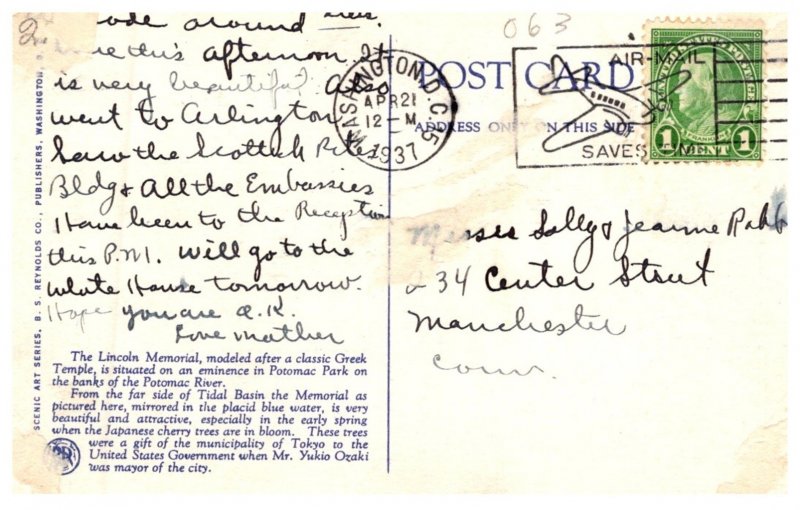 2
ode around trees.
this afternoon. It
is very beautiful. Also
went to Arlington
Saw the Scottish Rites
Bldg & All the Embassies
Have been to the Reception
this P.M. Will go to the
White House tomorrow.
Hope you are O.K.
Love Mother
The Lincoln Memorial, modeled after a classic Greek
Temple, is situated on an eminence in Potomac Park on
the banks of the Potomac River.
From the far side of Tidal Basin the Memorial as
pictured here, mirrored in the placid blue water, is very
beautiful and attractive, especially in the early spring
when the Japanese cherry trees are in bloom. These trees
were a gift of the municipality of Tokyo to the
United States Government when Mr. Yukio Ozaki
was mayor of the city.
SCENIC ART SERIES, B. S. REYNOLDS CO., PUBLISHERS, WASHINGTON,
063
POST CARD
ADDRESS ONLY ON THIS SIDE
WASHINGTON, D.C. 5
APR 21
12 - M
1937
AIR-MAIL
SAVES TIME
UNITED STATES POSTAGE
FRANKLIN
1 CENT 1
Misses Sally & Jeanne Robb
234 Center Street
Manchester
Conn.